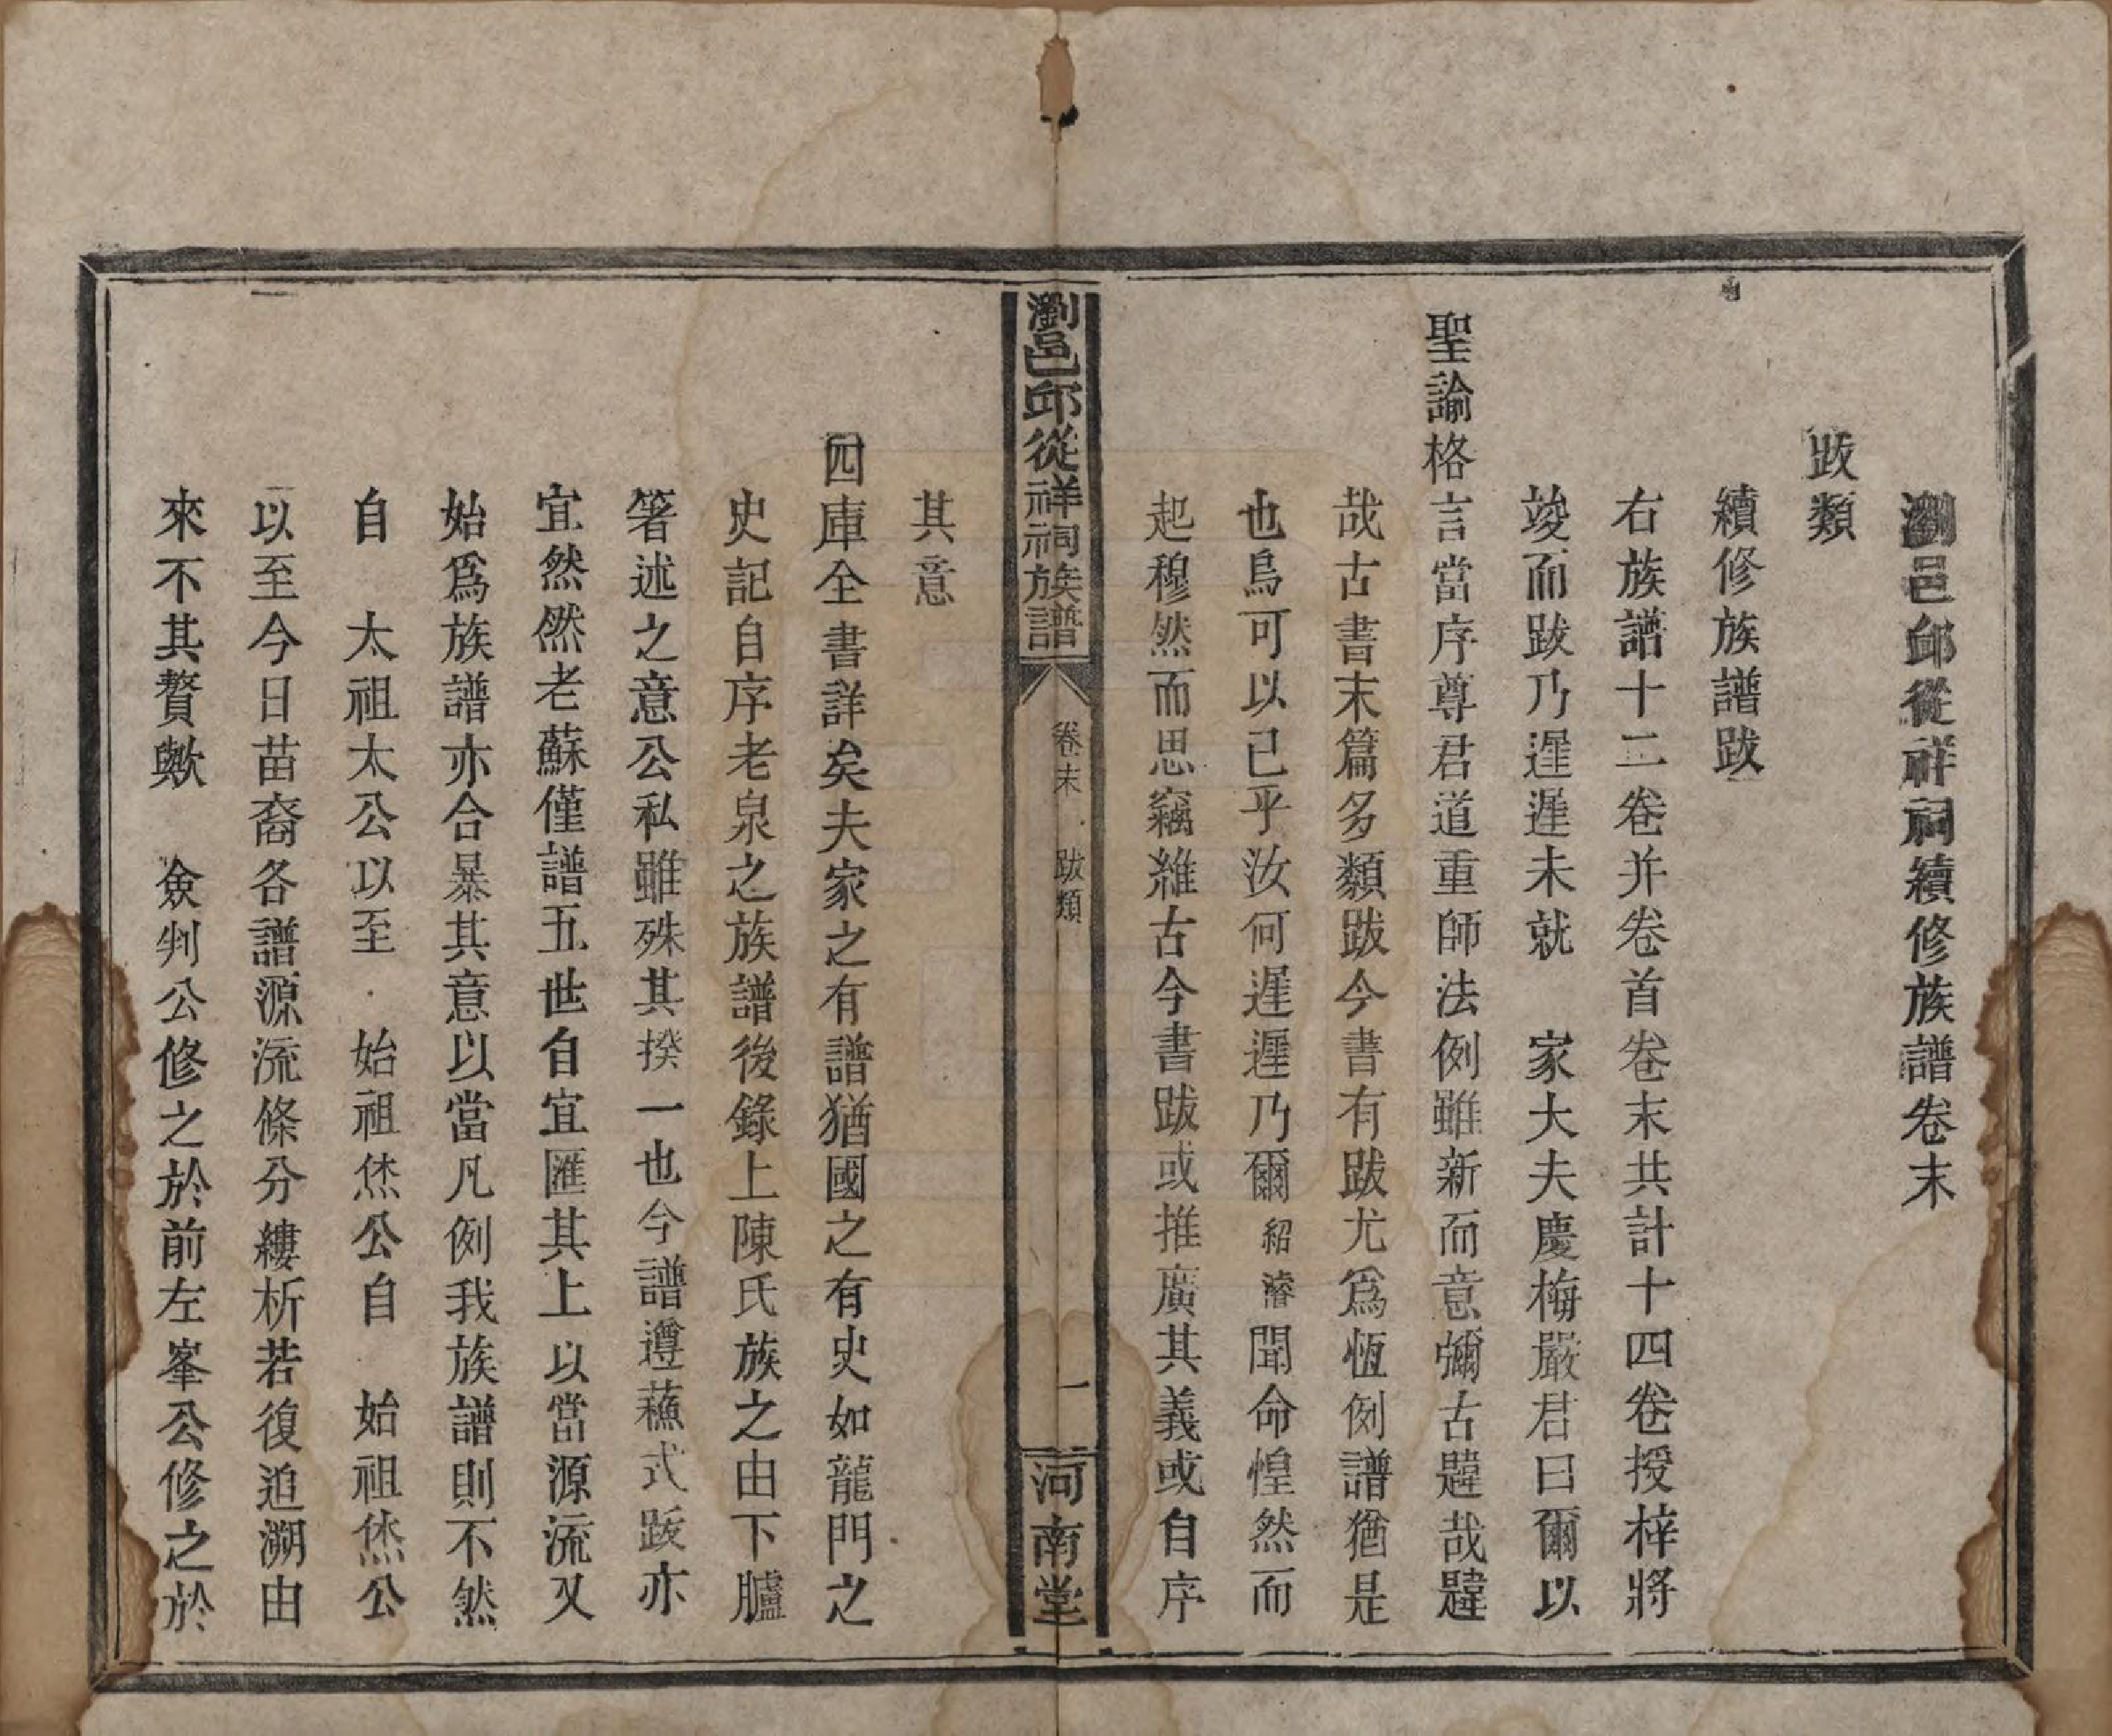 瀏邑邱從祥祠續修族譜卷末
跋類
續修族譜跋
右族譜十二卷并卷首卷末共計十四卷授梓將
竣而跋乃遲遲未就　家大夫慶梅嚴君曰爾以
聖諭格言當序尊君道重師法例雖新而意彌古韙哉韙
哉古書末篇多類跋今書有跋尤爲恆例譜猶是
也烏可以已乎汝何遲遲乃爾紹濬聞命惶然而
起穆然而思竊維古今書跋或推廣其義或自序
瀏邑邱從祥祠族譜
卷末　跋類
一
河南堂
其意
四庫全書詳矣夫家之有譜猶國之有史如龍門之
史記自序老泉之族譜後錄上陳氏族之由下臚
箸述之意公私雖殊其揆一也今譜遵蘓式跋亦
宜然然老蘇僅譜五世自宜匯其上以當源流又
始爲族譜亦合暴其意以當凡例我族譜則不然
自　太祖太公以至　始祖烋公自　始祖烋公
以至今日苗裔各譜源流條分縷析若復追溯由
來不其贅歟　僉判公修之於前左峯公修之於